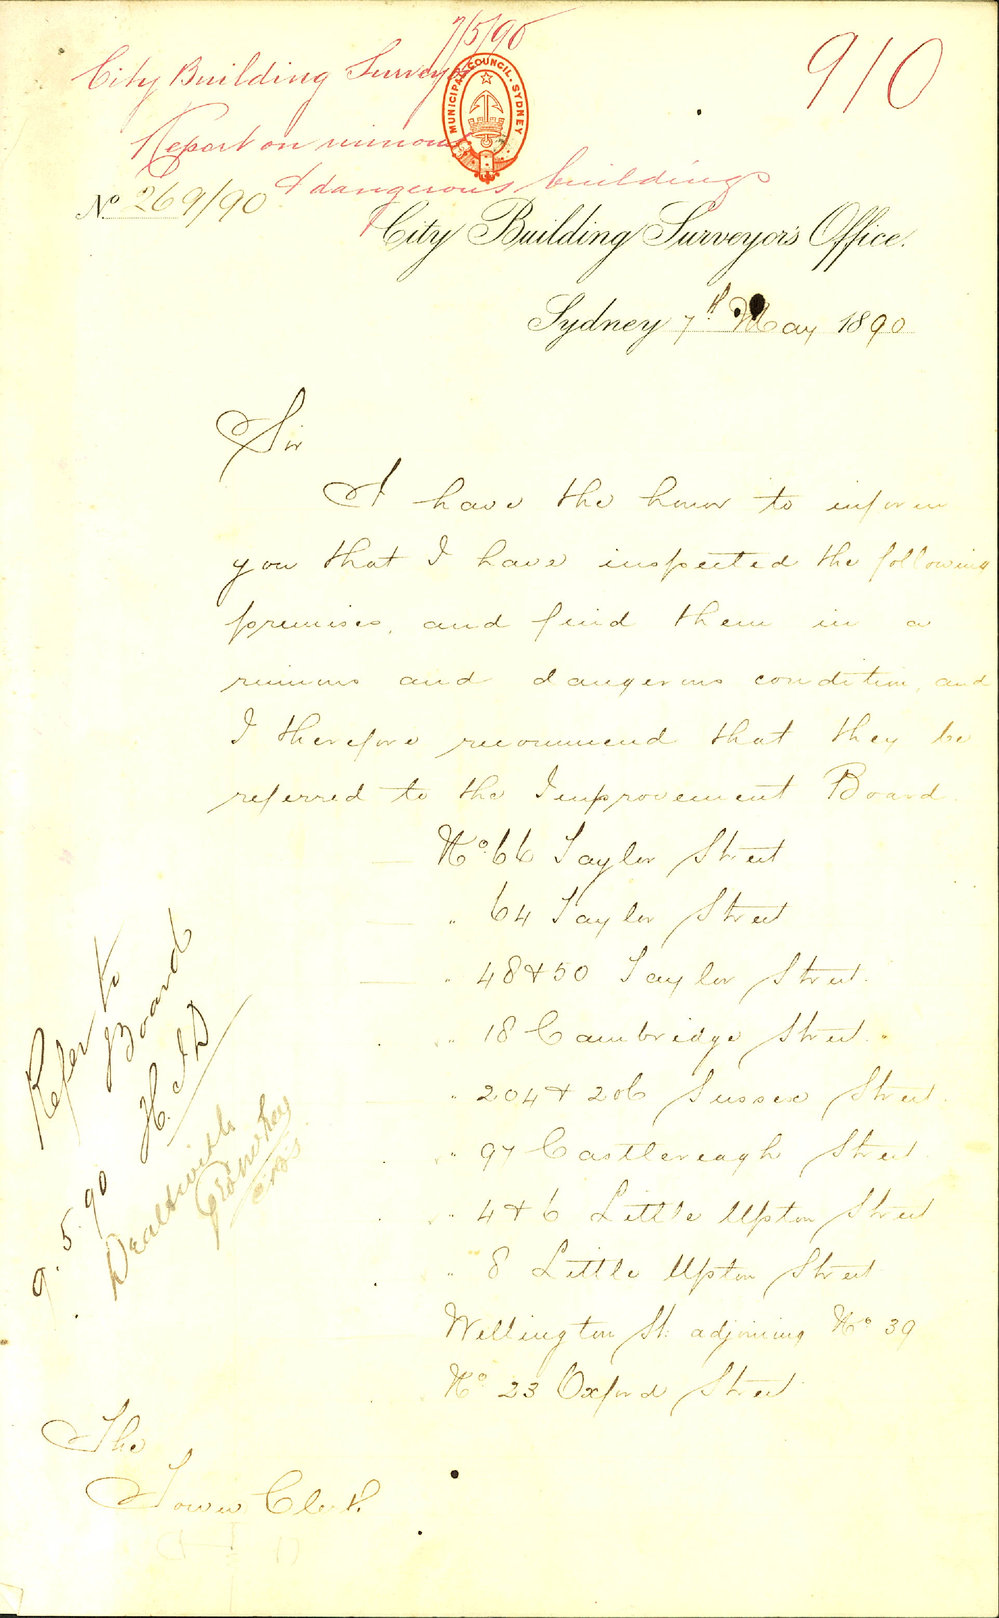 7/5/90
910
City Building Surveyor
MUNICIPAL COUNCIL · SYDNEY
Report on ruinous
& dangerous buildings
No. 269/90
City Building Surveyor's Office.
Sydney 7th May 1890
Sir
I have the honor to inform
you that I have inspected the following
premises, and find them in a
ruinous and dangerous condition, and
I therefore recommend that they be
referred to the Improvement Board.
No. 66 Taylor Street
" 64 Taylor Street
" 48 & 50 Taylor Street.
" 18 Cambridge Street.
" 204 & 206 Sussex Street.
" 97 Castlereagh Street.
" 4 & 6 Little Upton Street
" 8 Little Upton Street
Wellington St. adjoining No 39
No 23 Oxford Street
Refer to
Board
9.5.90
Dealt with
The
Town Clerk